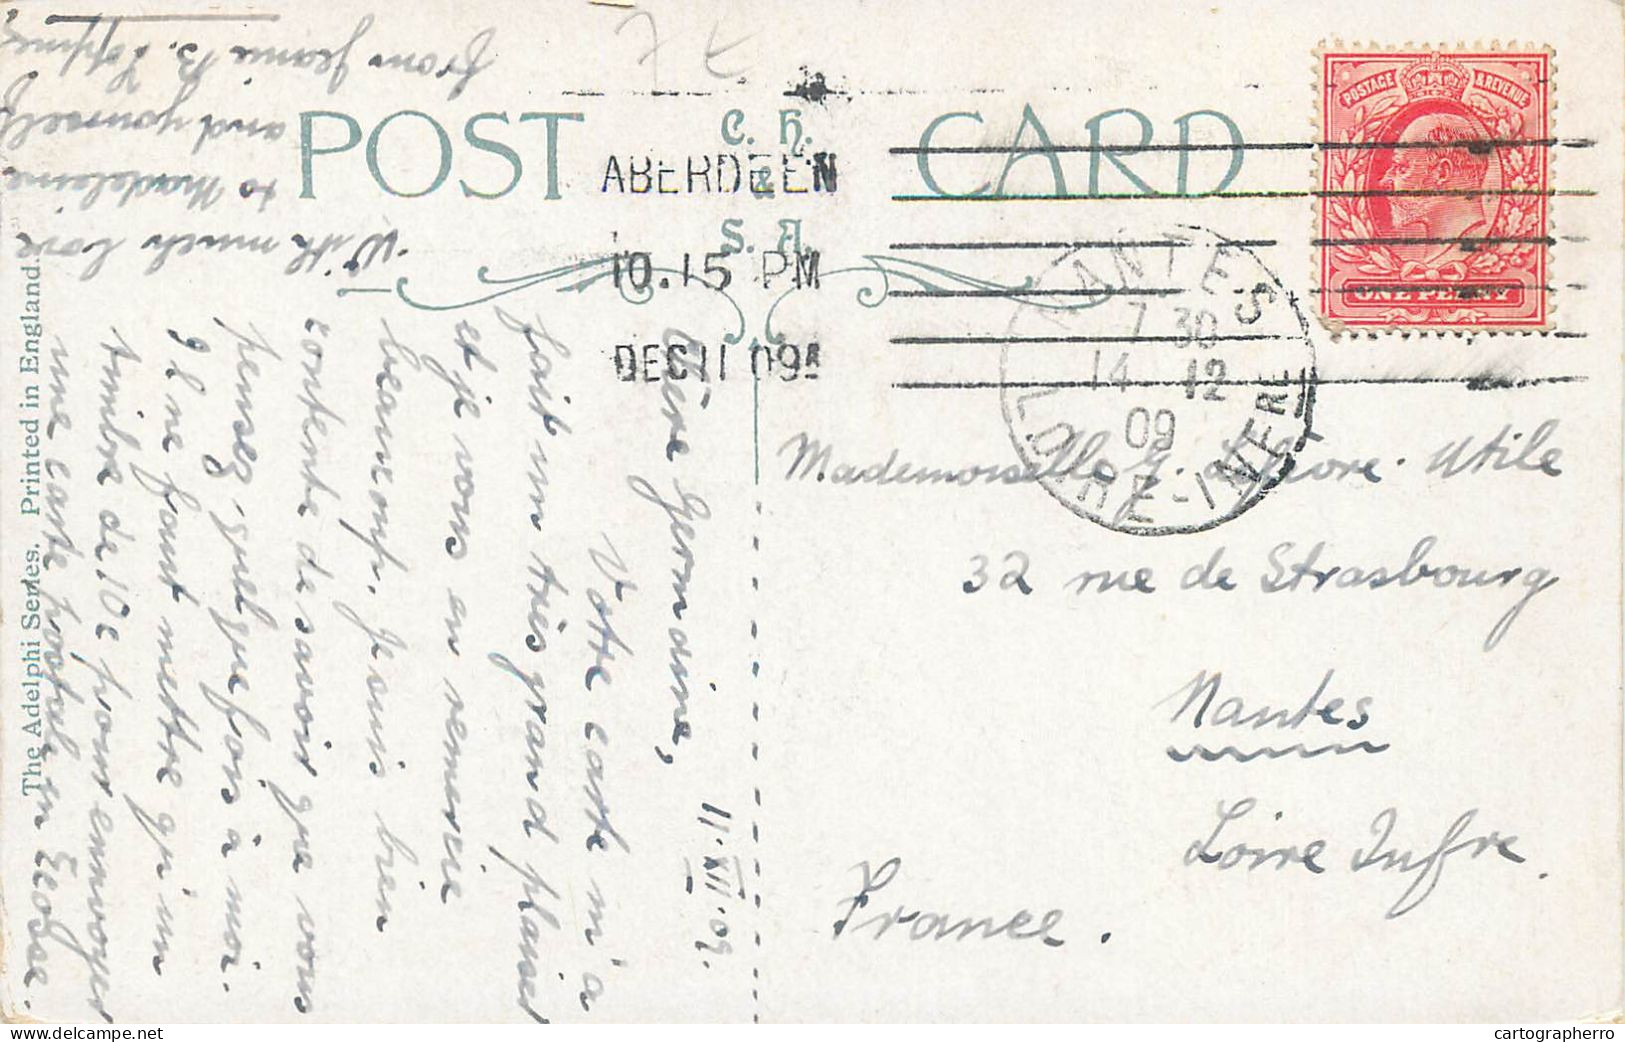 POST CARD
C. H.
&
S. A.
ABERDEEN
10.15 PM
DEC 11 09
POSTAGE & REVENUE
ONE PENNY
NANTES
7 30
14 12
09
LOIRE-INFRE
The Adelphi Series. Printed in England.
11.XII.09.
Chère Germaine,
Votre carte m'a
fait un très grand plaiser
et je vous en remercie
beaucoup. Je suis bien
contente de savoir que vous
pensez quelquefois à moi.
Il ne faut mettre qu'un
timbre de 10c pour envoyer
une carte postale en Ecosse.
With much love
to Madeleine
and yourself
from Jeanie B.
Mademoiselle G. Utile
32 rue de Strasbourg
Nantes
Loire Infre.
France.
cartographerro